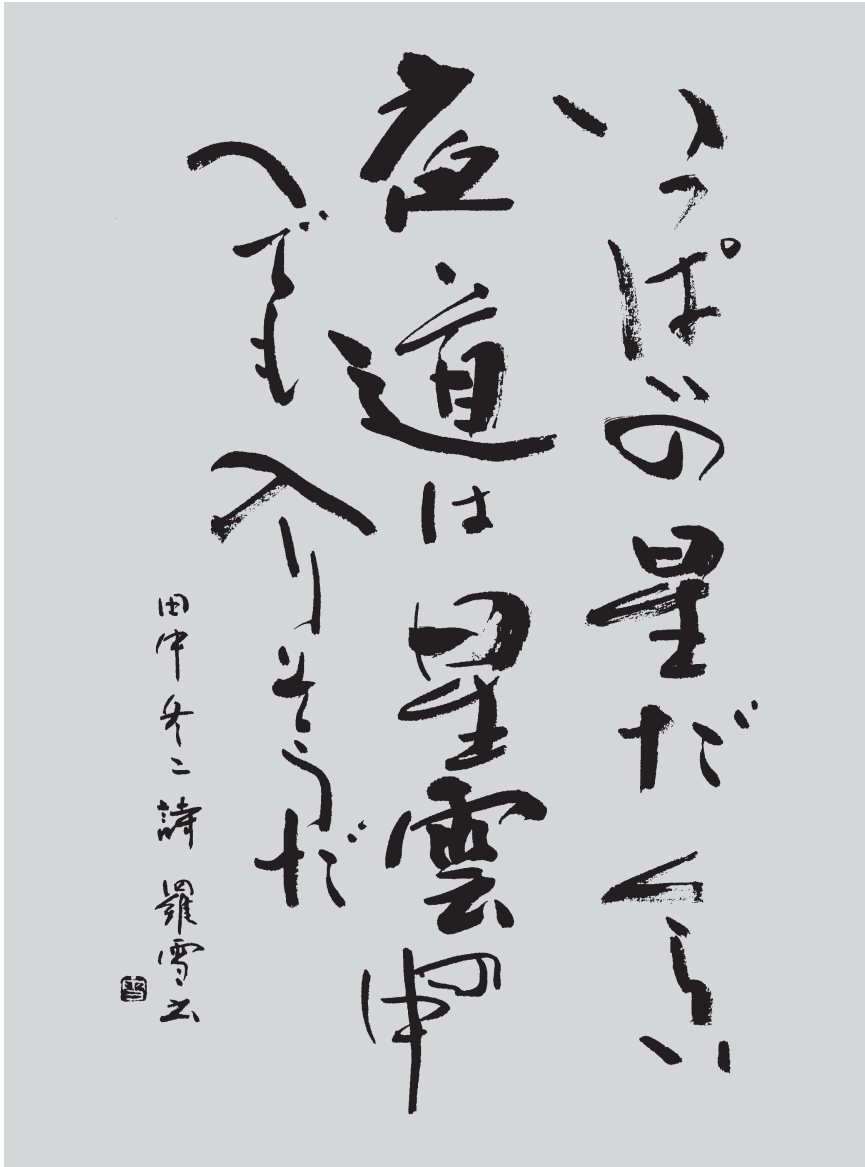 いっぱいの星だくらい
夜道は星雲の中
へでも入りそうだ
田中冬二詩 羅雪書